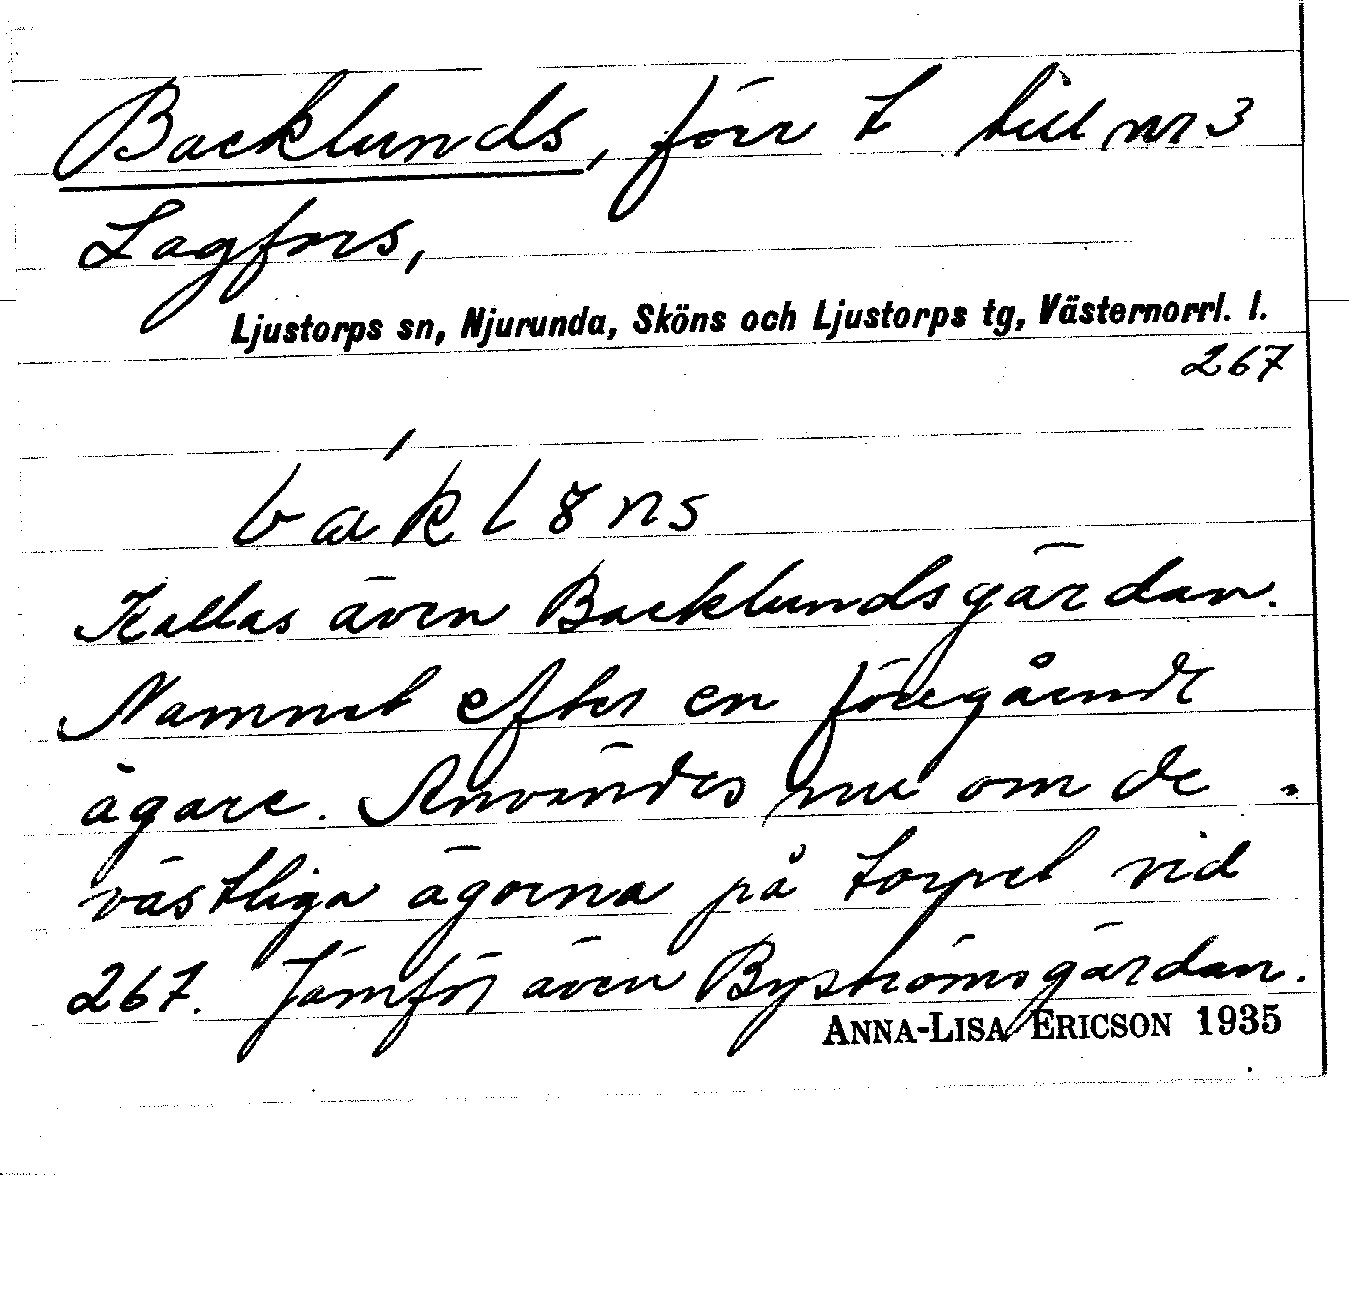 Backlunds, förr t till nr 3
Lagfors,
Ljustorps sn, Njurunda, Sköns och Ljustorps tg, Västernorrl. l.
267
bak l8ns
Kallas även Backlundsgärdan.
Namnet efter en föregående
ägare. Användes nu om de
västliga ägorna på torpet vid
267. Jämför även Byströmsgärdan.
ANNA-LISA ERICSON 1935